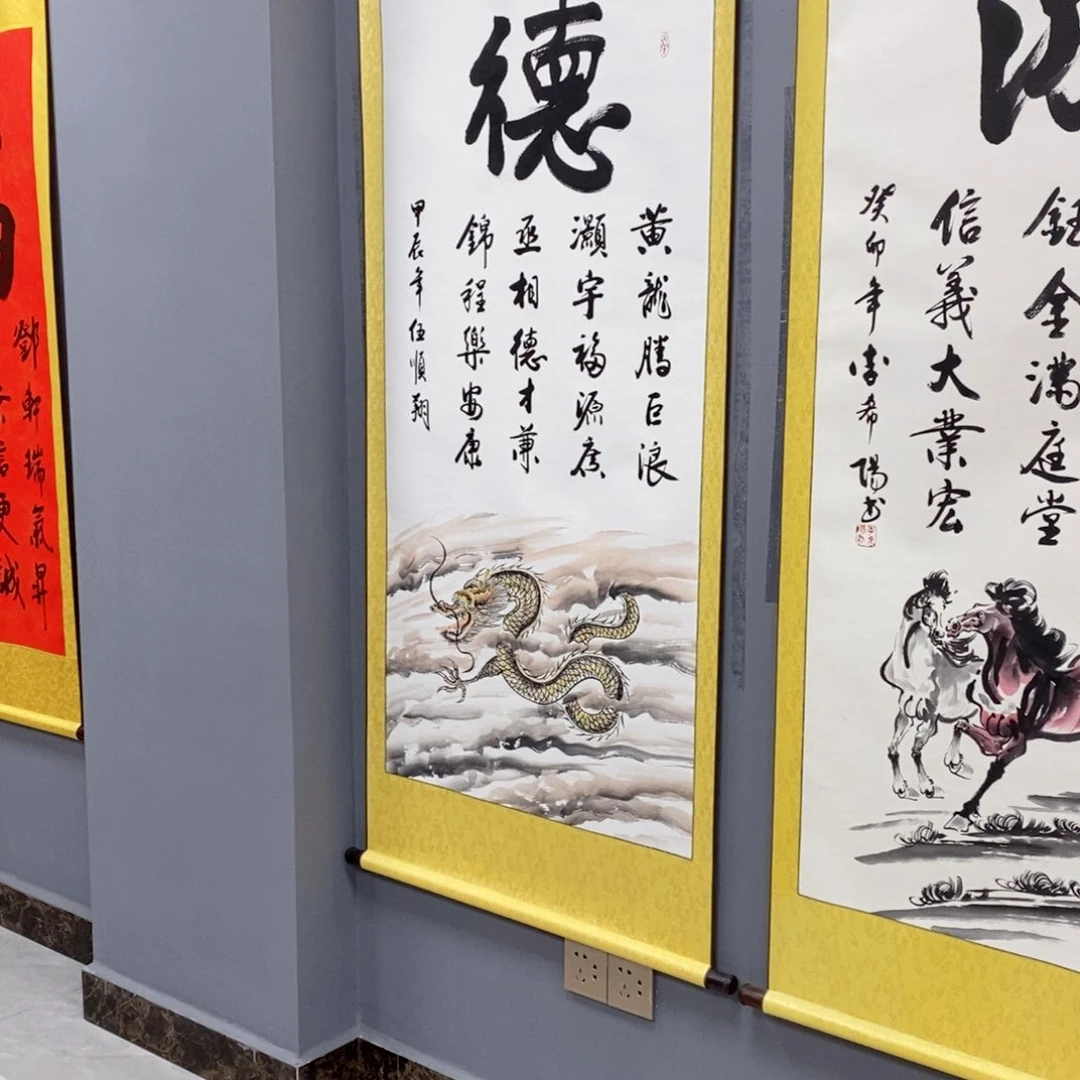 德
黃龍騰巨浪
灝宇福源廣
丞相德才兼
錦程樂安康
甲辰年伍順翔
鈺金滿庭堂
信義大業宏
癸卯年李希陽書
鄧軒瑞氣昇
信更誠